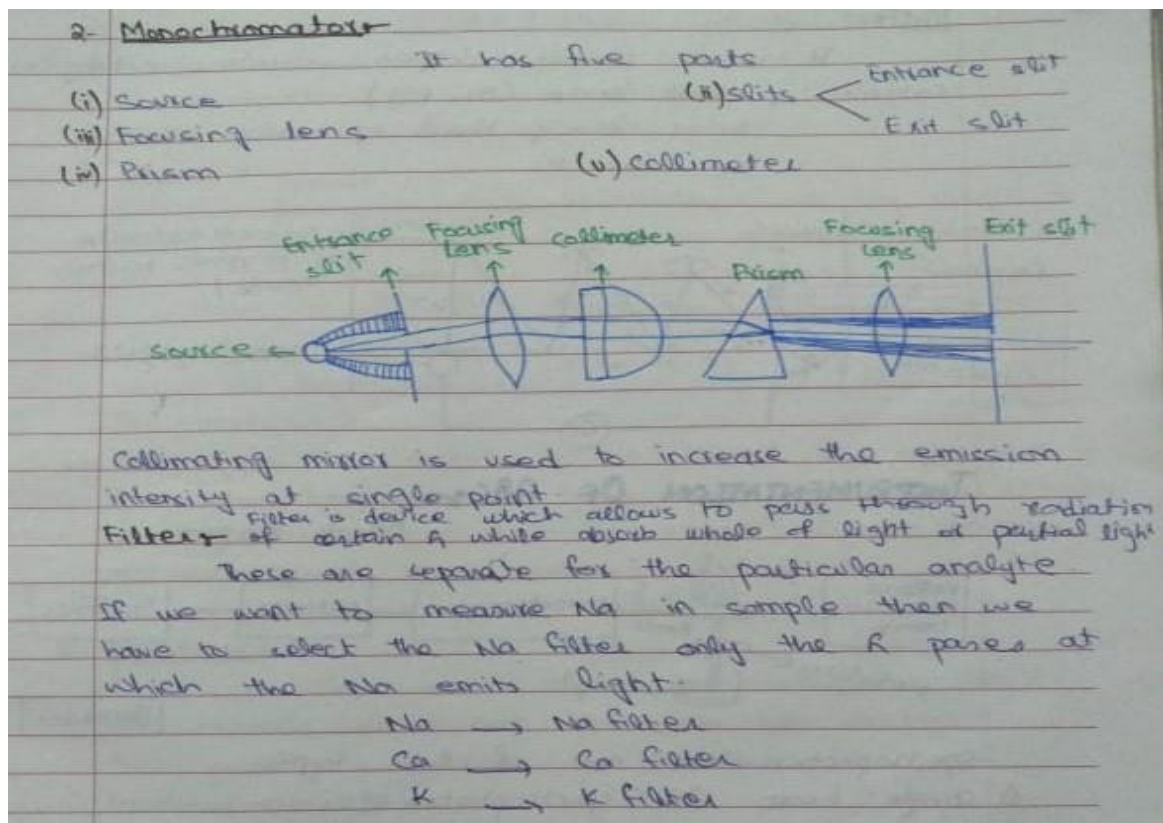 2- Monochromator
It has five parts
(i) Source (ii) slits Entrance slit
Exit slit
(iii) Focusing lens
(iv) Prism (v) Collimeter
Entrance slit Focusing Lens Collimeter Prism Focusing Lens Exit slit
source
Collimating mirror is used to increase the emission
intensity at single point.
Filter is device which allows to pass through radiation
Filter of certain λ while absorb whole of light or partial light
These are separate for the particular analyte
If we want to measure Na in sample then we
have to select the Na filter only the λ passes at
which the Na emits light.
Na → Na filter
Ca → Ca filter
K → K filter